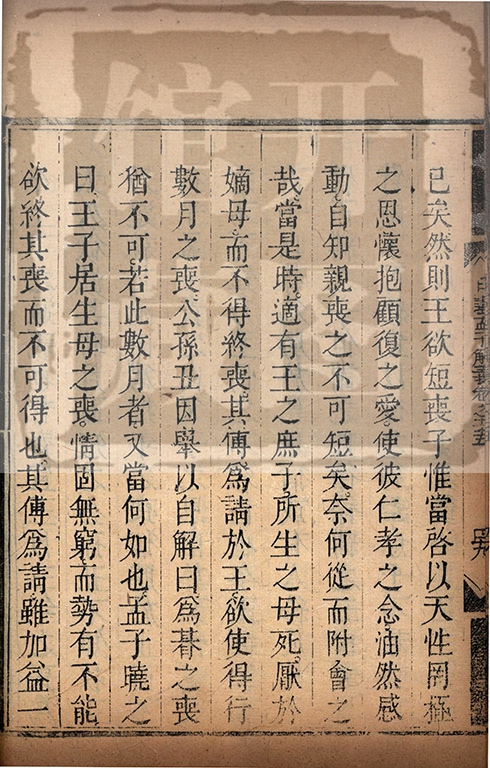 已矣然則王欲短喪子惟當啓以天性罔極
之恩懷抱顧復之愛使彼仁孝之念油然感
動自知親喪之不可短矣奈何從而附會之
哉當是時適有王之庶子所生之母死厭於
嫡母而不得終喪其傅爲請於王欲使得行
數月之喪公孫丑因舉以自解曰爲朞之喪
猶不可若此數月者又當何如也孟子曉之
曰王子居生母之喪情固無窮而勢有不能
欲終其喪而不可得也其傅爲請雖加益一